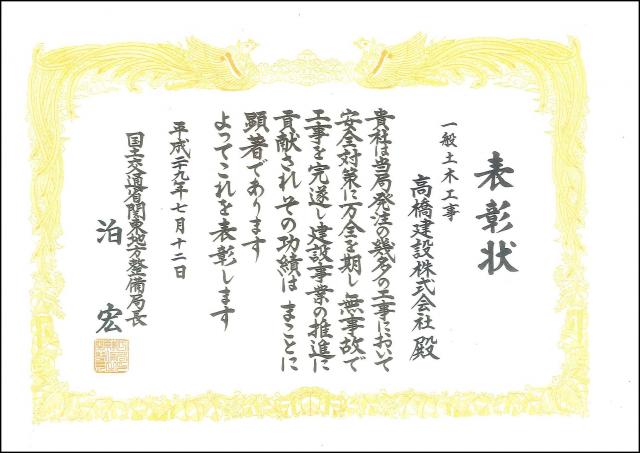 表彰状
一般土木工事
高橋建設株式会社 殿
貴社は当局発注の幾多の工事において
安全対策に万全を期し無事故で
工事を完遂し建設事業の推進に
貢献されその功績は まことに
顕著であります
よってこれを表彰します
平成二十九年七月十二日
国土交通省関東地方整備局長
泊 宏